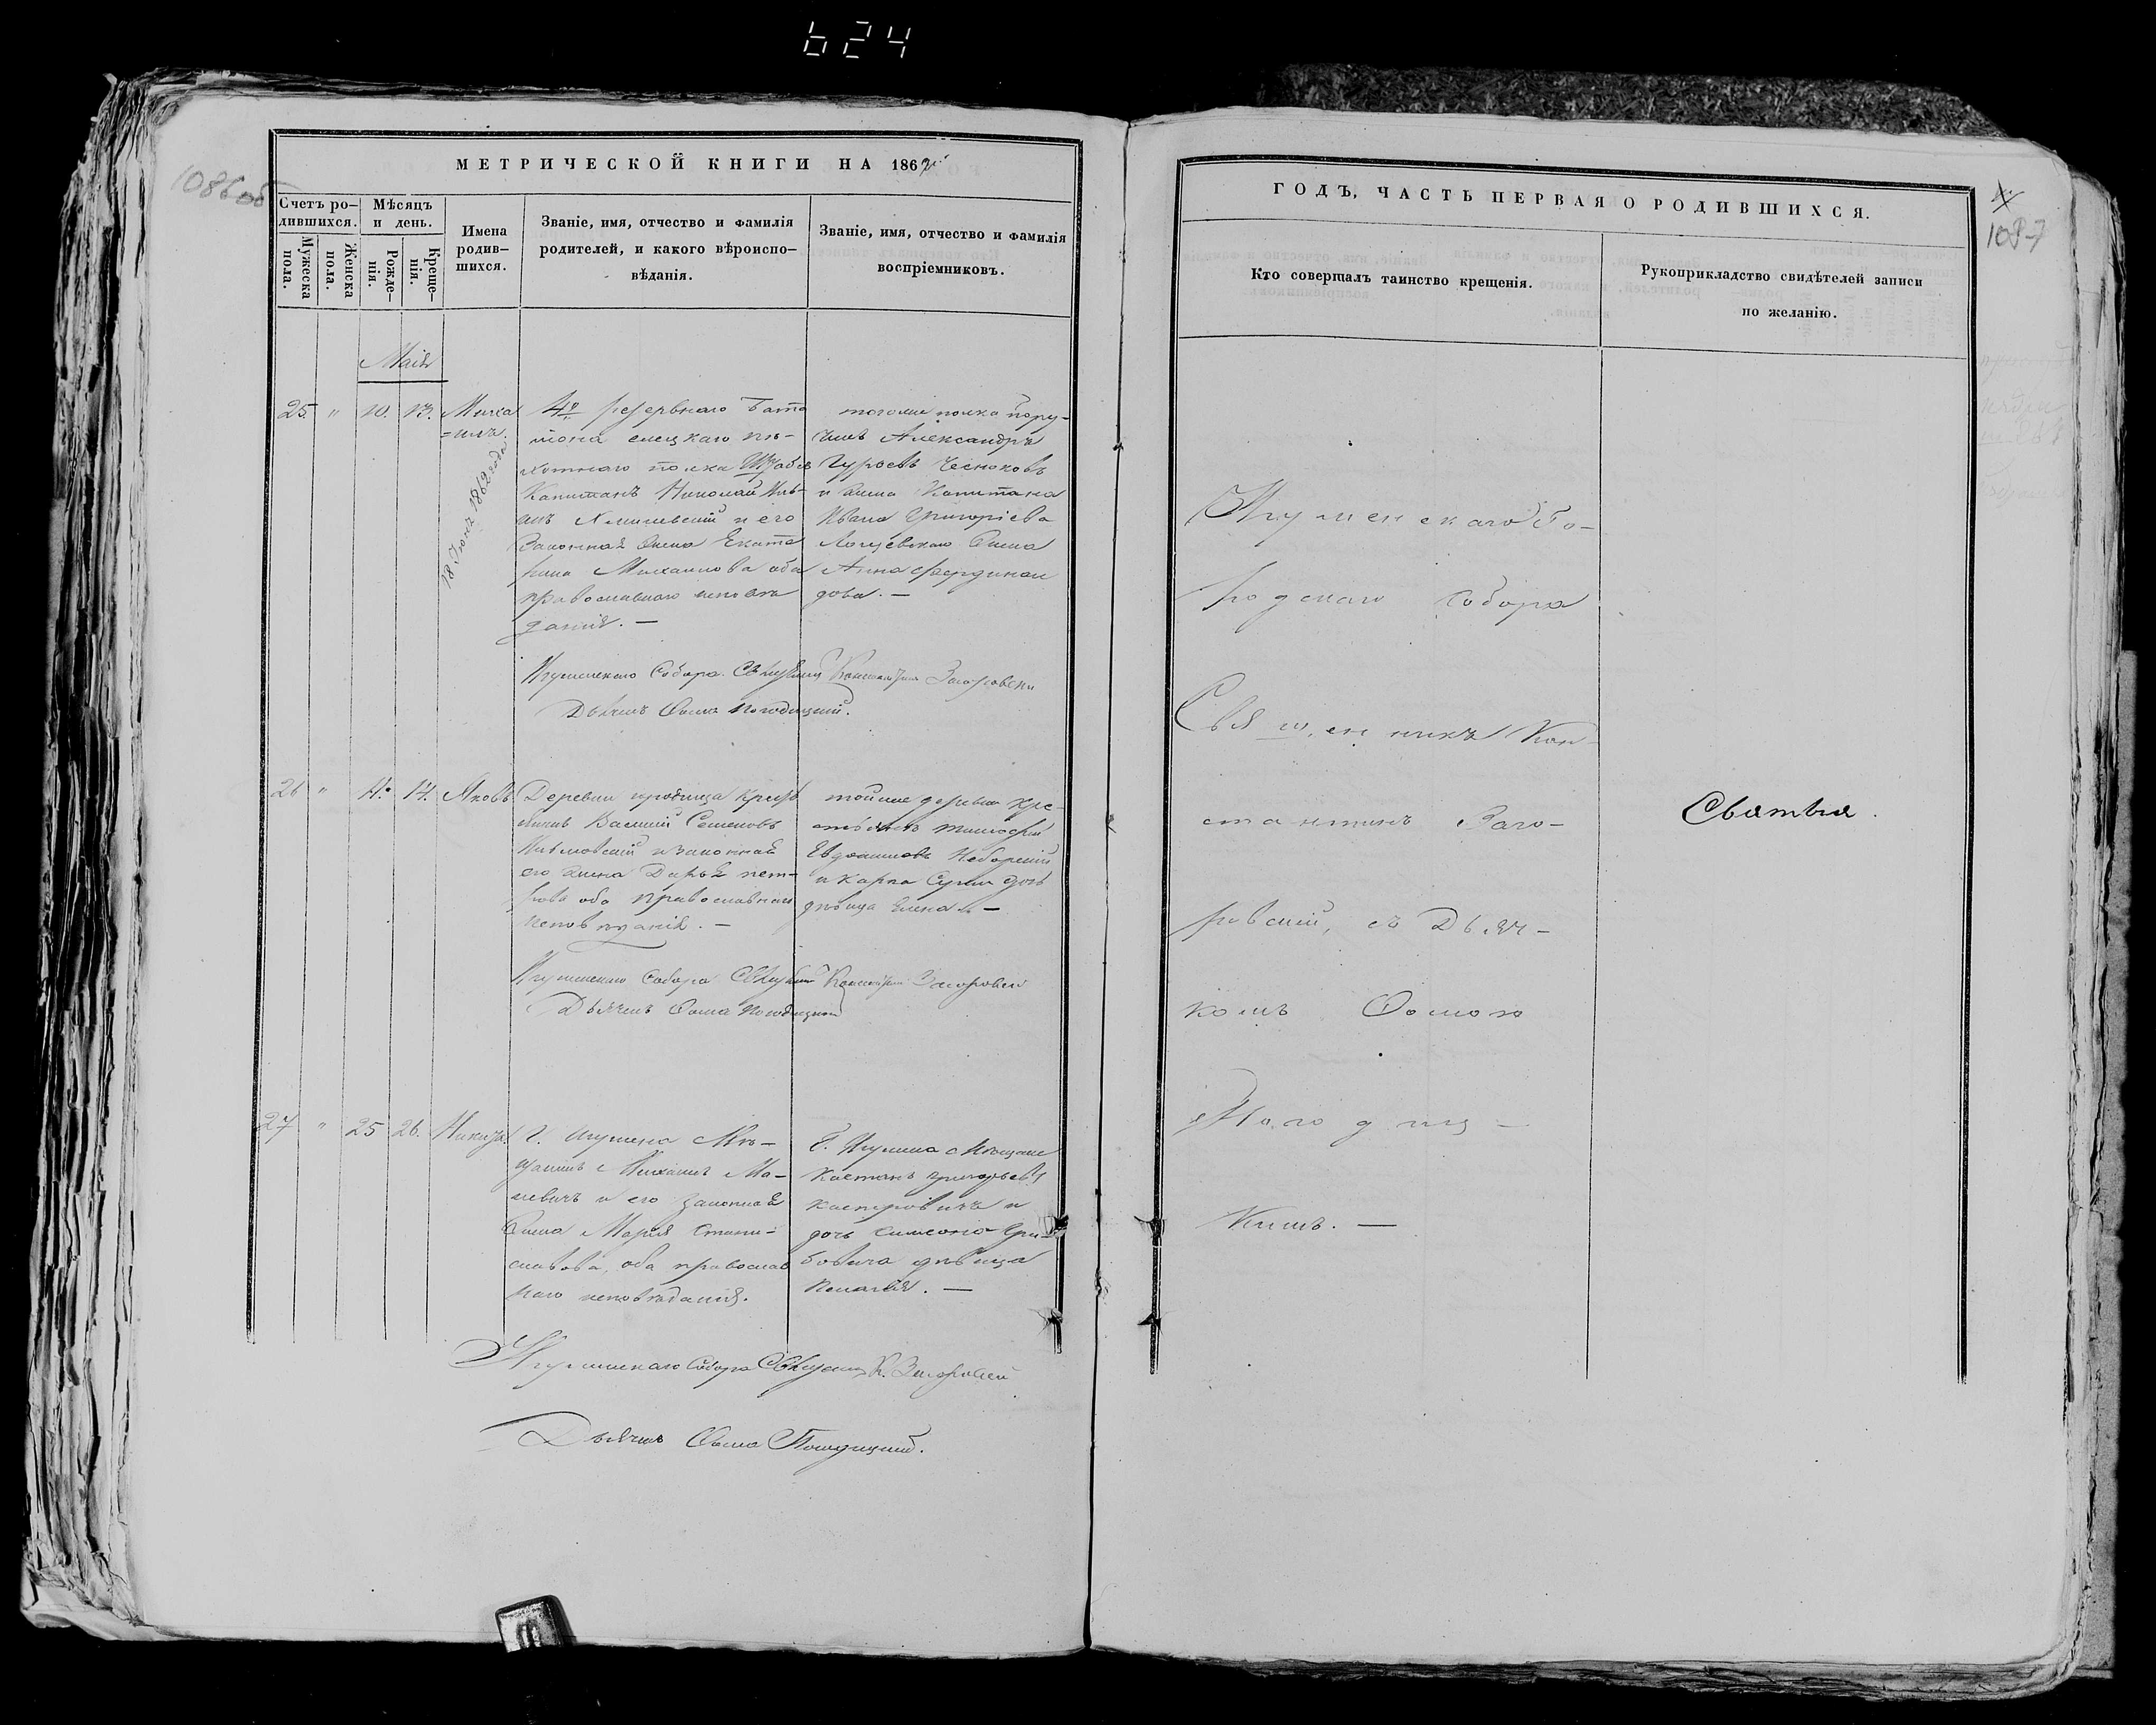 624
МЕТРИЧЕСКОЙ КНИГИ НА 1862
1086 об
Счетъ ро-
дившихся.
Мужеска
пола.
Женска
пола.
Мѣсяцъ
и день.
Рожде-
нія.
Креще-
нія.
Имена
родив-
шихся.
Званіе, имя, отчество и фамилія
родителей, и какого вѣроиспо-
вѣданія.
Званіе, имя, отчество и фамилія
воспріемниковъ.
Маія
25. " 10. 13.
Миха
=илъ.
18 1862 года
4го резервнаго бата
ліона елецкаго пѣ-
хотнаго полка Штабсъ
Капитанъ Николай
и его
Законная Жена Екате
рина Михаилова оба
православнаго исповѣ
данія. —
тогоже полка Пору-
чикъ Александръ
Чесноковъ
и Жена Капитана
Ивана Григоріева
Жена
Анна Фердинан
дова. —
Игуменскаго Собора Священ Константинъ Загоровскій
Дьячекъ Ѳома Погодицкій.
26 " 4. 14. Яковъ
Деревни крест
янинъ Василій Семеновъ
и законная
его жена Дарья Пет-
рова оба православнаго
исповѣданія. —
тойже деревни кре-
стьянинъ Тимофей
Евдокимовъ
и Карпа дочь
дѣвица Елена —
Игуменскаго Собора Священ Константинъ Загоровскій
Дьячекъ Ѳома Погодицкій
27 " 25 26. Никита
Г. Игумена Мѣ-
щанинъ Михаилъ Ма-
левичъ и его законная
Жена Марія Стани-
славова, оба православ
наго исповѣданія.
Г. Игумена Мѣщане
Каетанъ Григорьевъ
Касперовичъ и
дочь Симеона Гри-
бовича дѣвица
Пелагія. —
Игуменскаго Собора Священ К. Загоровскій
Дьячекъ Ѳома Погодицкій.
ГОДЪ, ЧАСТЬ ПЕРВАЯ О РОДИВШИХСЯ.
1087
Кто совершалъ таинство крещенія.
Рукоприкладство свидѣтелей записи
по желанію.
Игуменскаго Го-
родскаго Собора
Священникъ Кон-
стантинъ Заго-
ровскій, съ Дьяч-
комъ Ѳомою
Погодиц-
кимъ. —